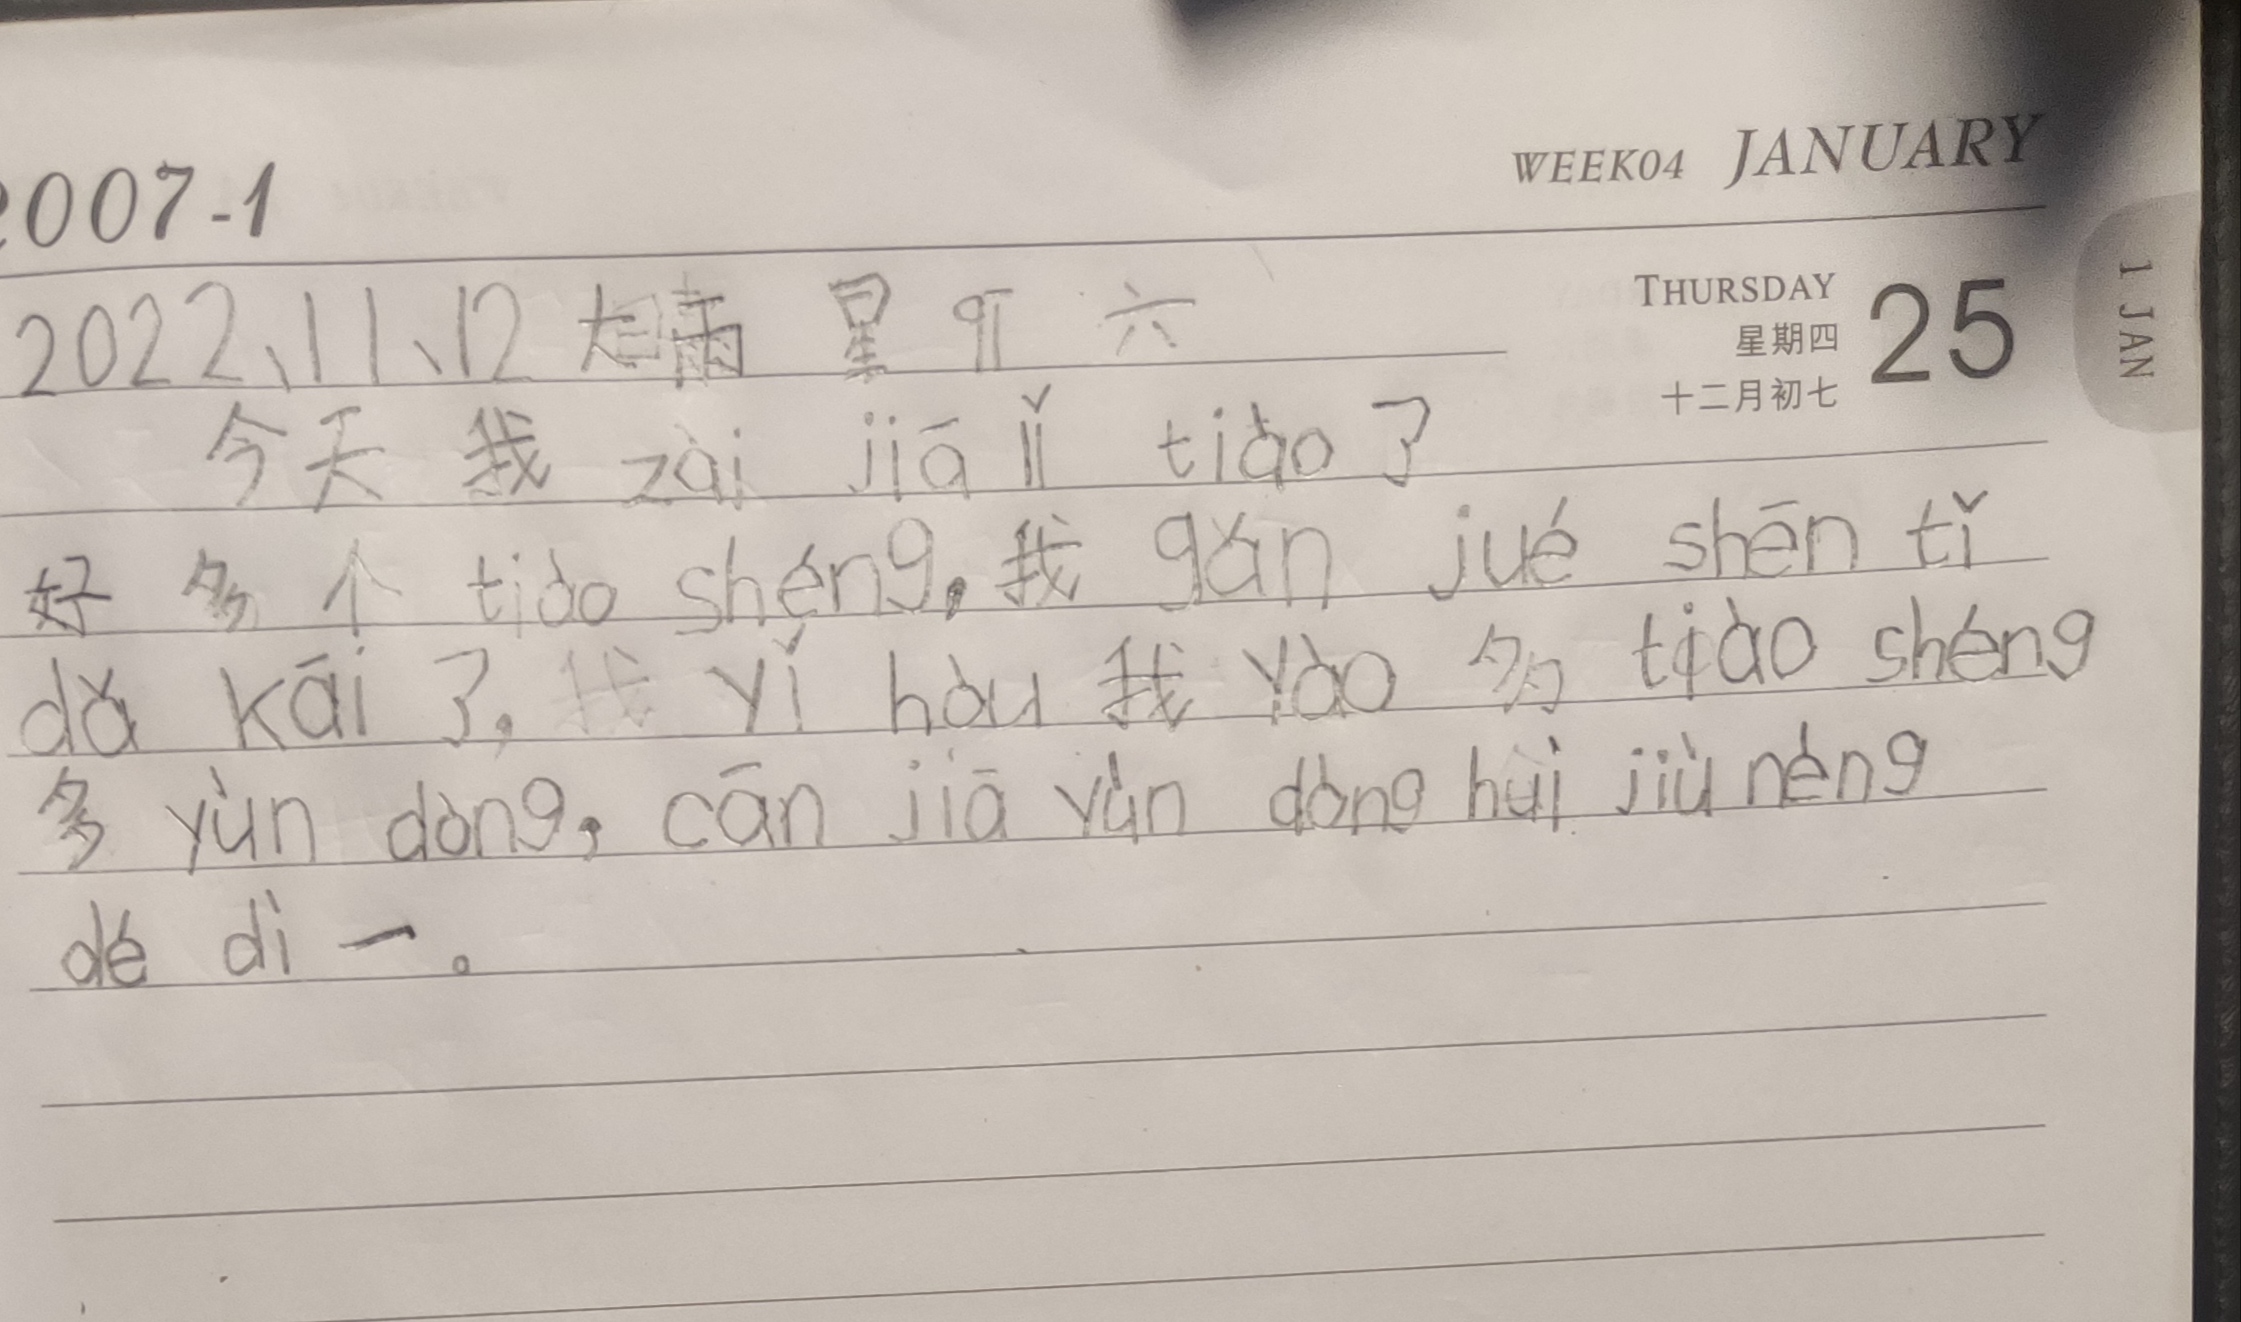 2007-1
WEEK04 JANUARY
1 JAN
THURSDAY 25
星期四
十二月初七
2022、11、12 大雨 星 qī 六
今天 我 zài jiā lǐ tiào 了
好 多 个 tiào shéng, 我 gǎn jué shēn tǐ
dǎ kāi 了, 我 yǐ hòu 我 yào 多 tiào shéng
多 yùn dòng, cān jiā yùn dòng huì jiù nèng
dé dì 一。